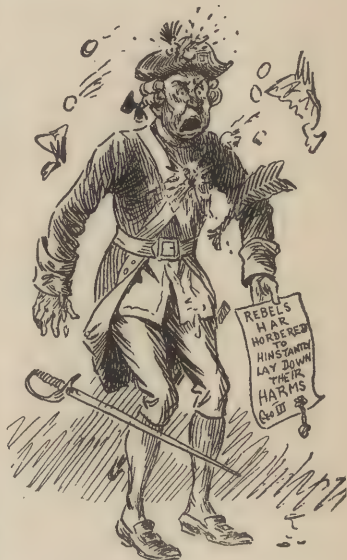 REBELS
HAR
HORDERED
TO
HINSTANTLY
LAY DOWN
THEIR
HARMS
GEO III